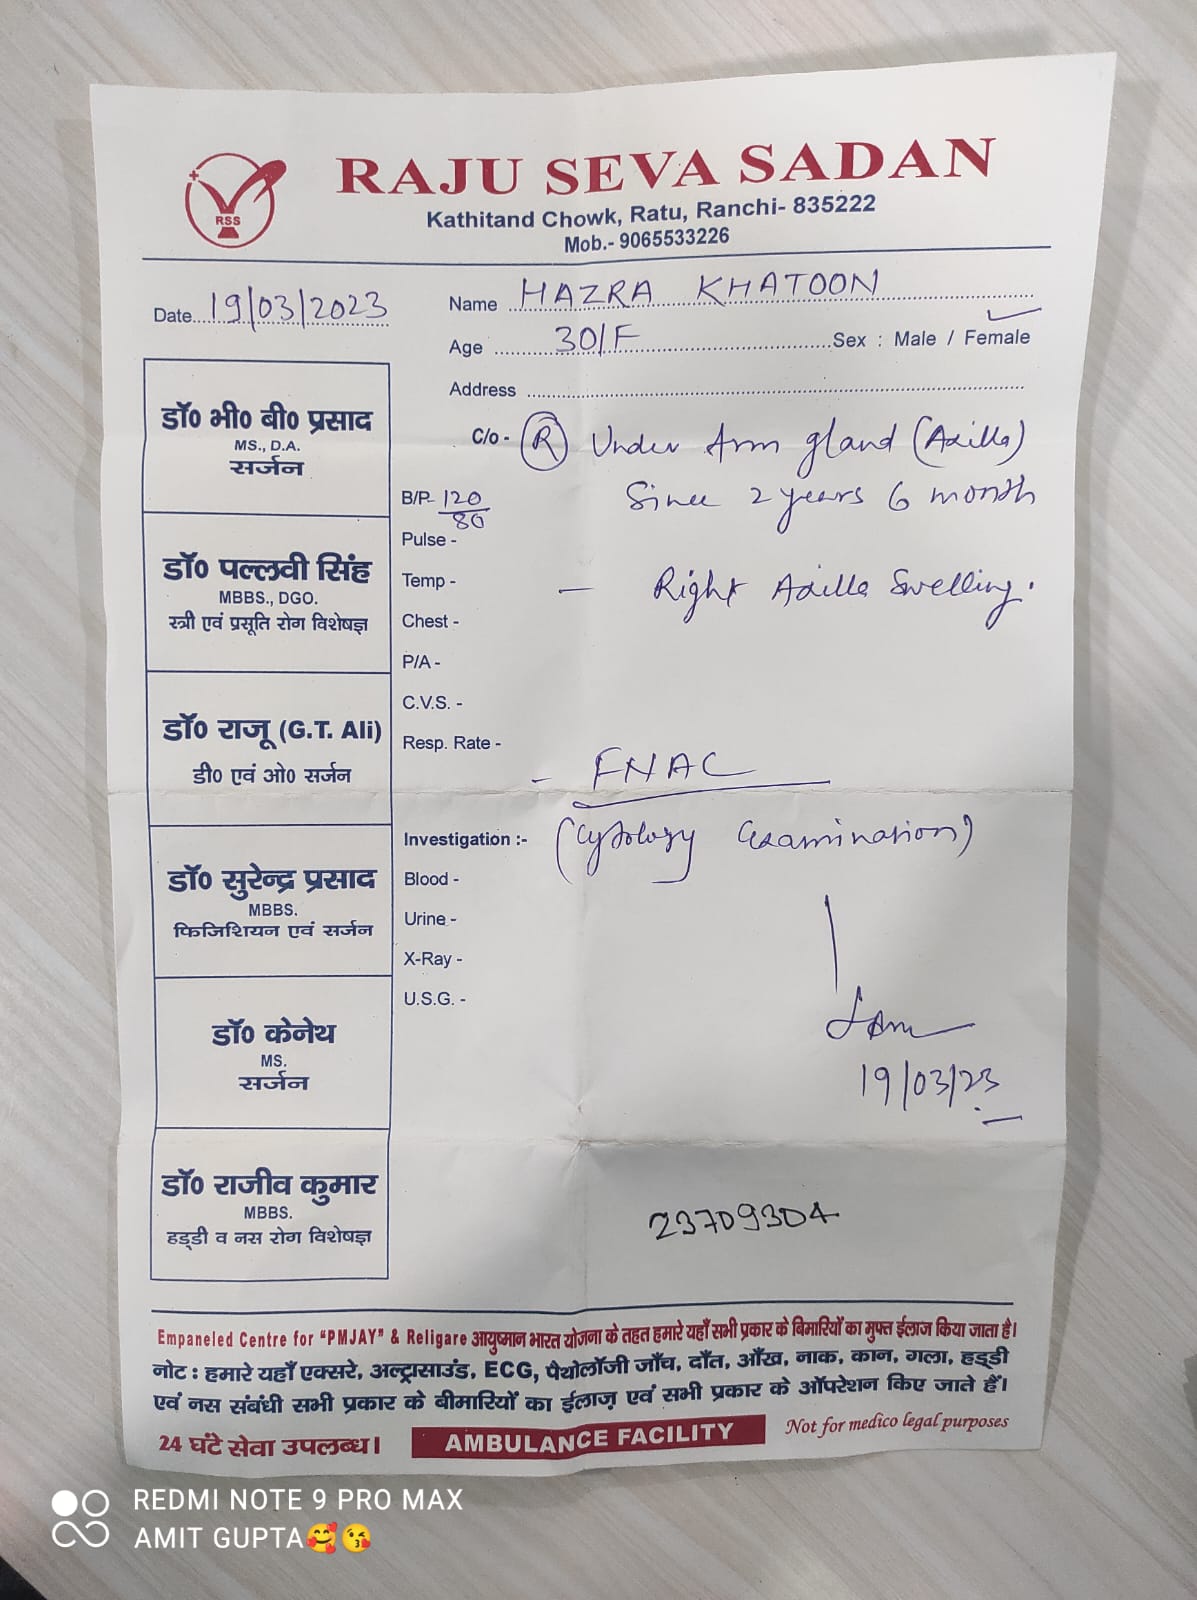 RSS
RAJU SEVA SADAN
Kathitand Chowk, Ratu, Ranchi- 835222
Mob.- 9065533226
Date 19/03/2023
Name HAZRA KHATOON
Age 30/F Sex : Male / Female
Address
C/o - (R) Under Arm gland (Axilla)
Since 2 years 6 month
B/P- 120/80
Pulse -
Temp - — Right Axilla Swelling.
Chest -
P/A -
C.V.S. -
Resp. Rate -
- FNAC
Investigation :- (Cytology examination)
Blood -
Urine -
X-Ray -
U.S.G. -
19/03/23
23709304
डॉ० भी० बी० प्रसाद
MS., D.A.
सर्जन
डॉ० पल्लवी सिंह
MBBS., DGO.
स्त्री एवं प्रसूति रोग विशेषज्ञ
डॉ० राजू (G.T. Ali)
डी० एवं ओ० सर्जन
डॉ० सुरेन्द्र प्रसाद
MBBS.
फिजिशियन एवं सर्जन
डॉ० केनेथ
MS.
सर्जन
डॉ० राजीव कुमार
MBBS.
हड्डी व नस रोग विशेषज्ञ
Empaneled Centre for "PMJAY" & Religare आयुष्मान भारत योजना के तहत हमारे यहाँ सभी प्रकार के बिमारियों का मुफ्त ईलाज किया जाता है।
नोट : हमारे यहाँ एक्सरे, अल्ट्रासाउंड, ECG, पैथोलॉजी जाँच, दाँत, आँख, नाक, कान, गला, हड्डी
एवं नस संबंधी सभी प्रकार के बीमारियों का ईलाज़ एवं सभी प्रकार के ऑपरेशन किए जाते हैं।
24 घंटे सेवा उपलब्ध। AMBULANCE FACILITY Not for medico legal purposes
REDMI NOTE 9 PRO MAX
AMIT GUPTA🥰😘